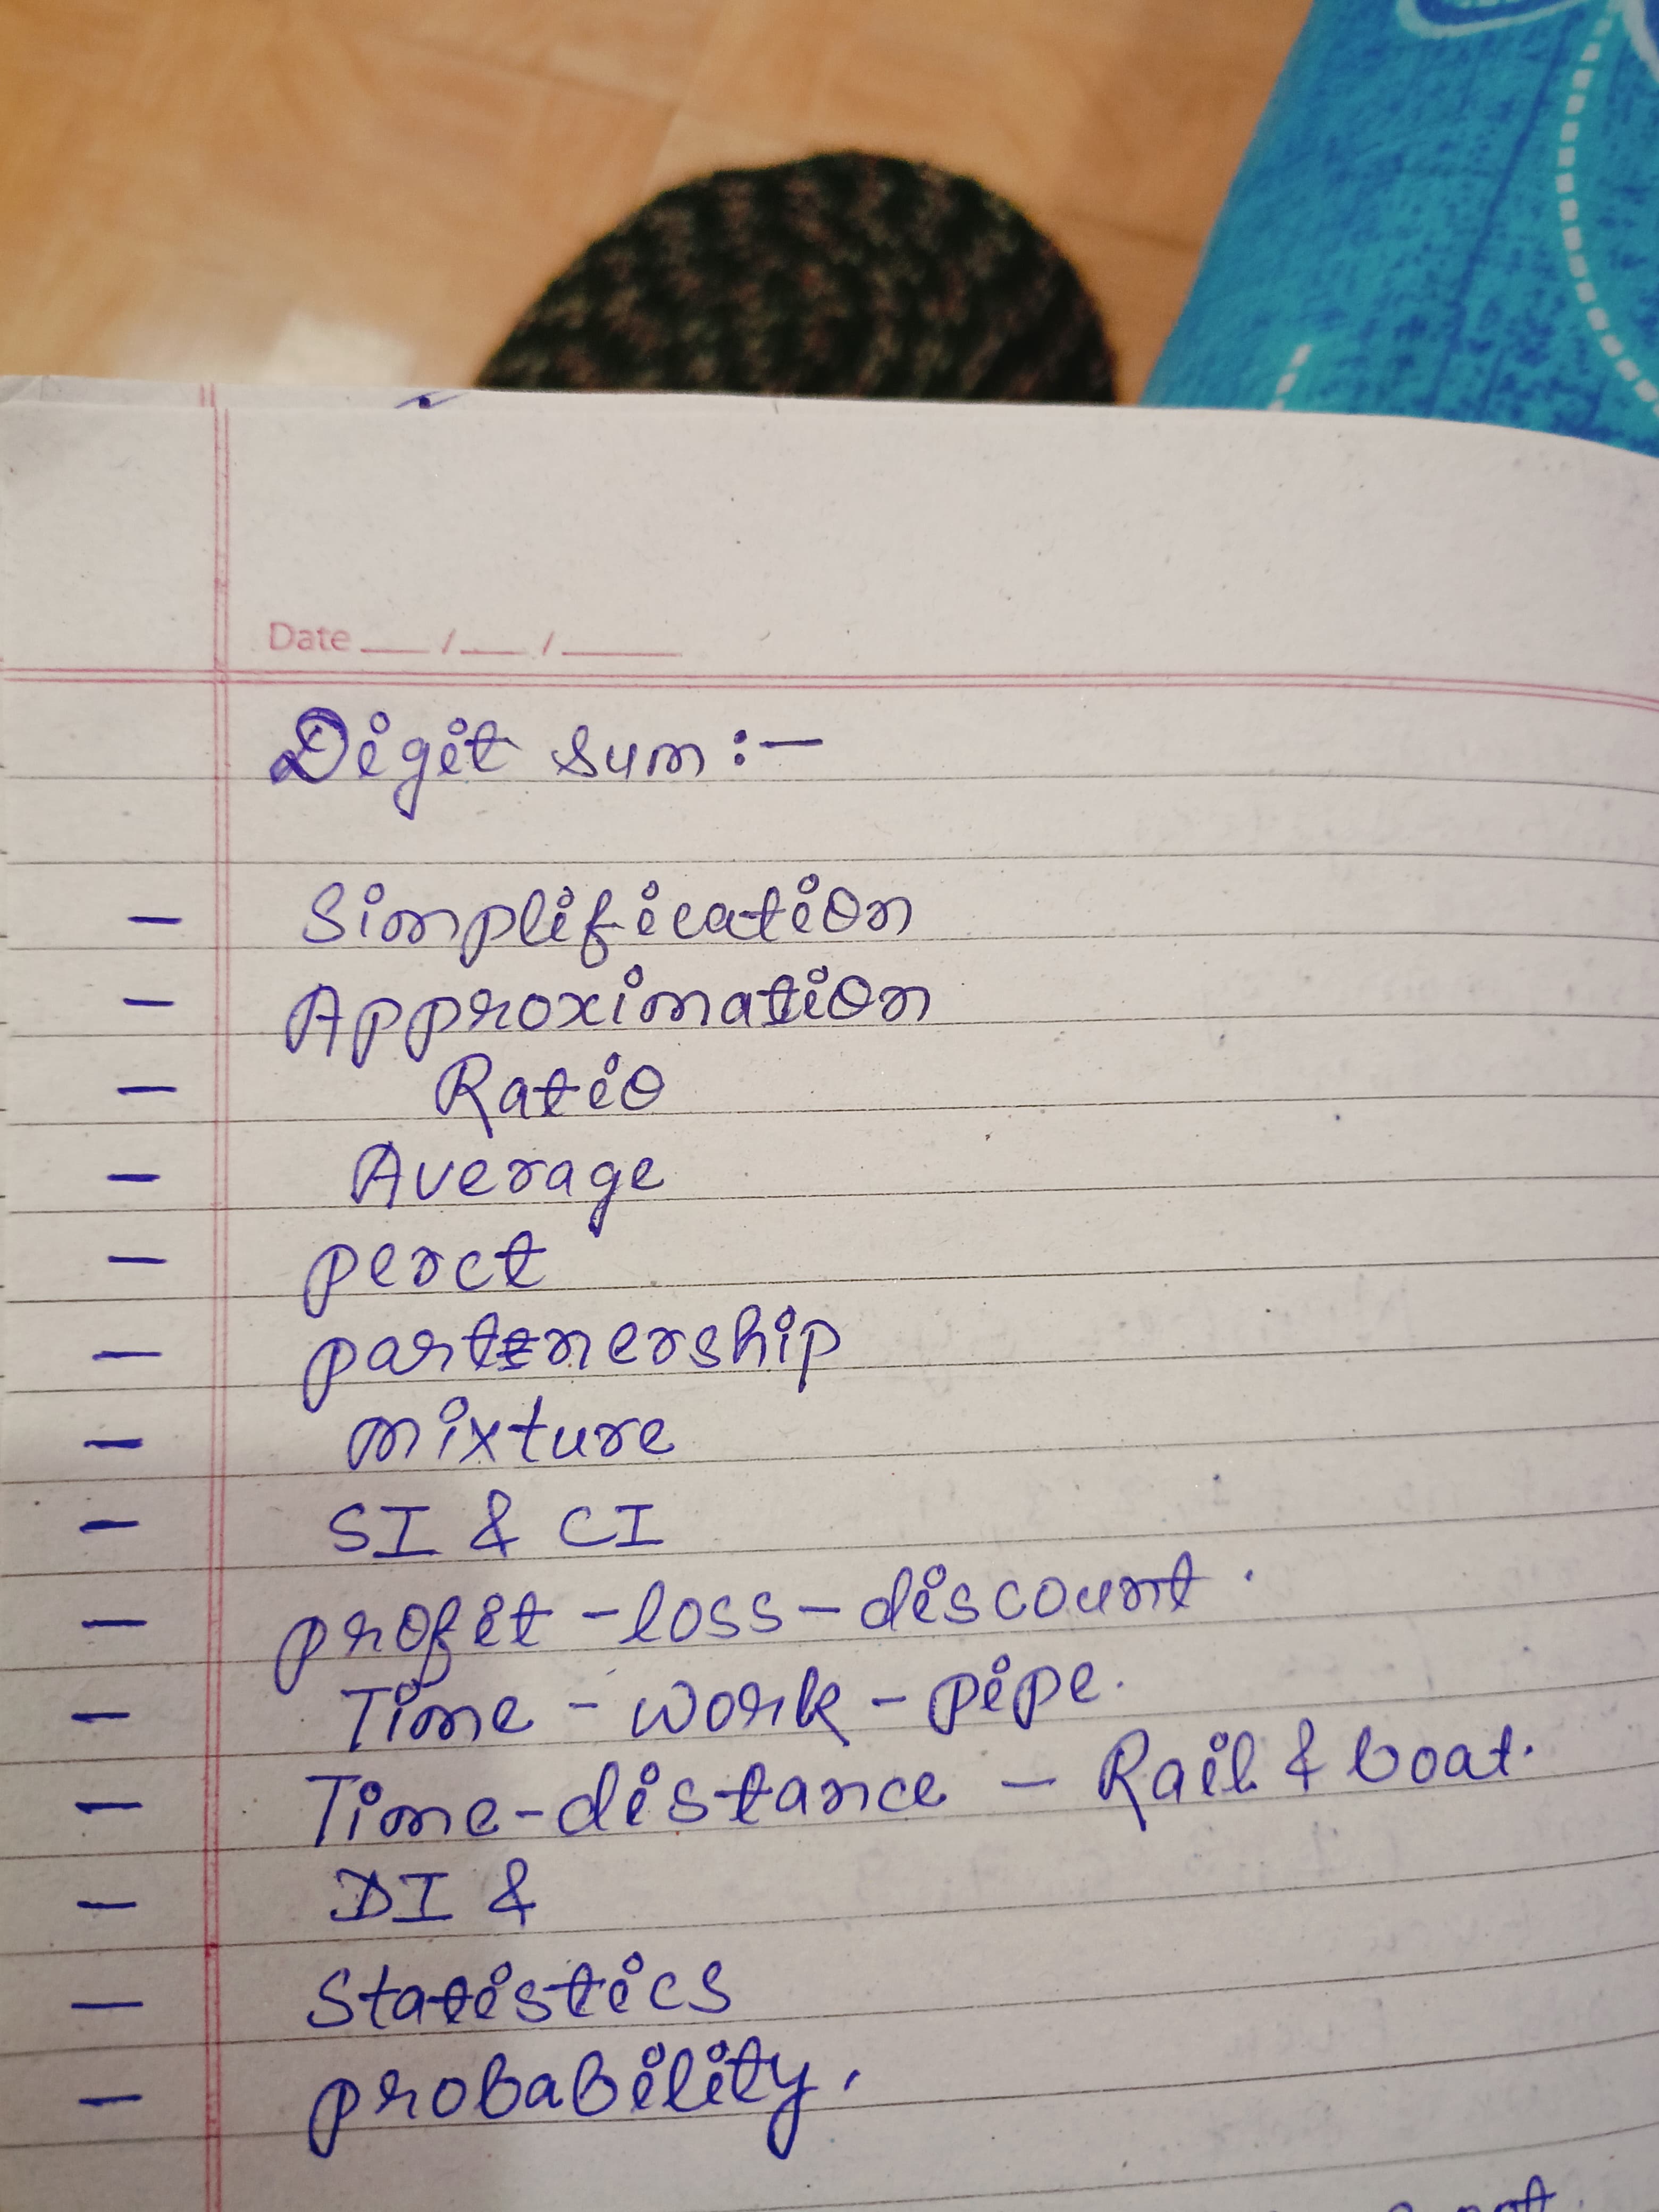 Date __/__/____
Digit sum :-
- Simplification
- Approximation
- Ratio
- Average
- perct
- partnership
- mixture
- SI & CI
- profit - loss - discount .
- Time - work - pipe.
- Time-distance - Rail & boat.
- DI &
- Statistics
- probability.